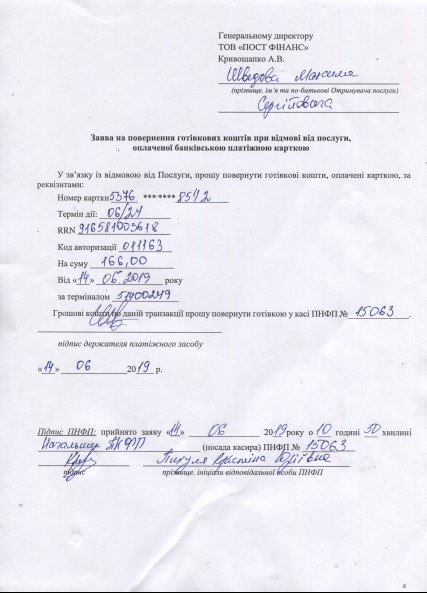 Генеральному директору
ТОВ «ПОСТ ФІНАНС»
Кривошапко А.В.
Шведова Максима
(прізвище, ім'я та по-батькові Отримувача послуги)
Сергійовича
Заява на повернення готівкових коштів при відмові від послуги,
оплаченої банківською платіжною карткою
У зв'язку із відмовою від Послуги, прошу повернути готівкові кошти, оплачені карткою, за
реквізитами:
Номер картки 5376 *** **** 8572
Термін дії: 06/21
RRN 916581003618
Код авторизації 011163
На суму 166,00
Від «14» 06.2019 року
за терміналом 51400249
Грошові кошти по даній транзакції прошу повернути готівкою у касі ПНФП № 15063.
підпис держателя платіжного засобу
«14» 06 2019 р.
Підпис ПНФП: прийнято заяву «14» 06 2019 року о 10 годині 50 хвилині
(посада касира) ПНФП № 15063
Крістіна Юріївна
підпис прізвище. ініціали відповідальної особи ПНФП